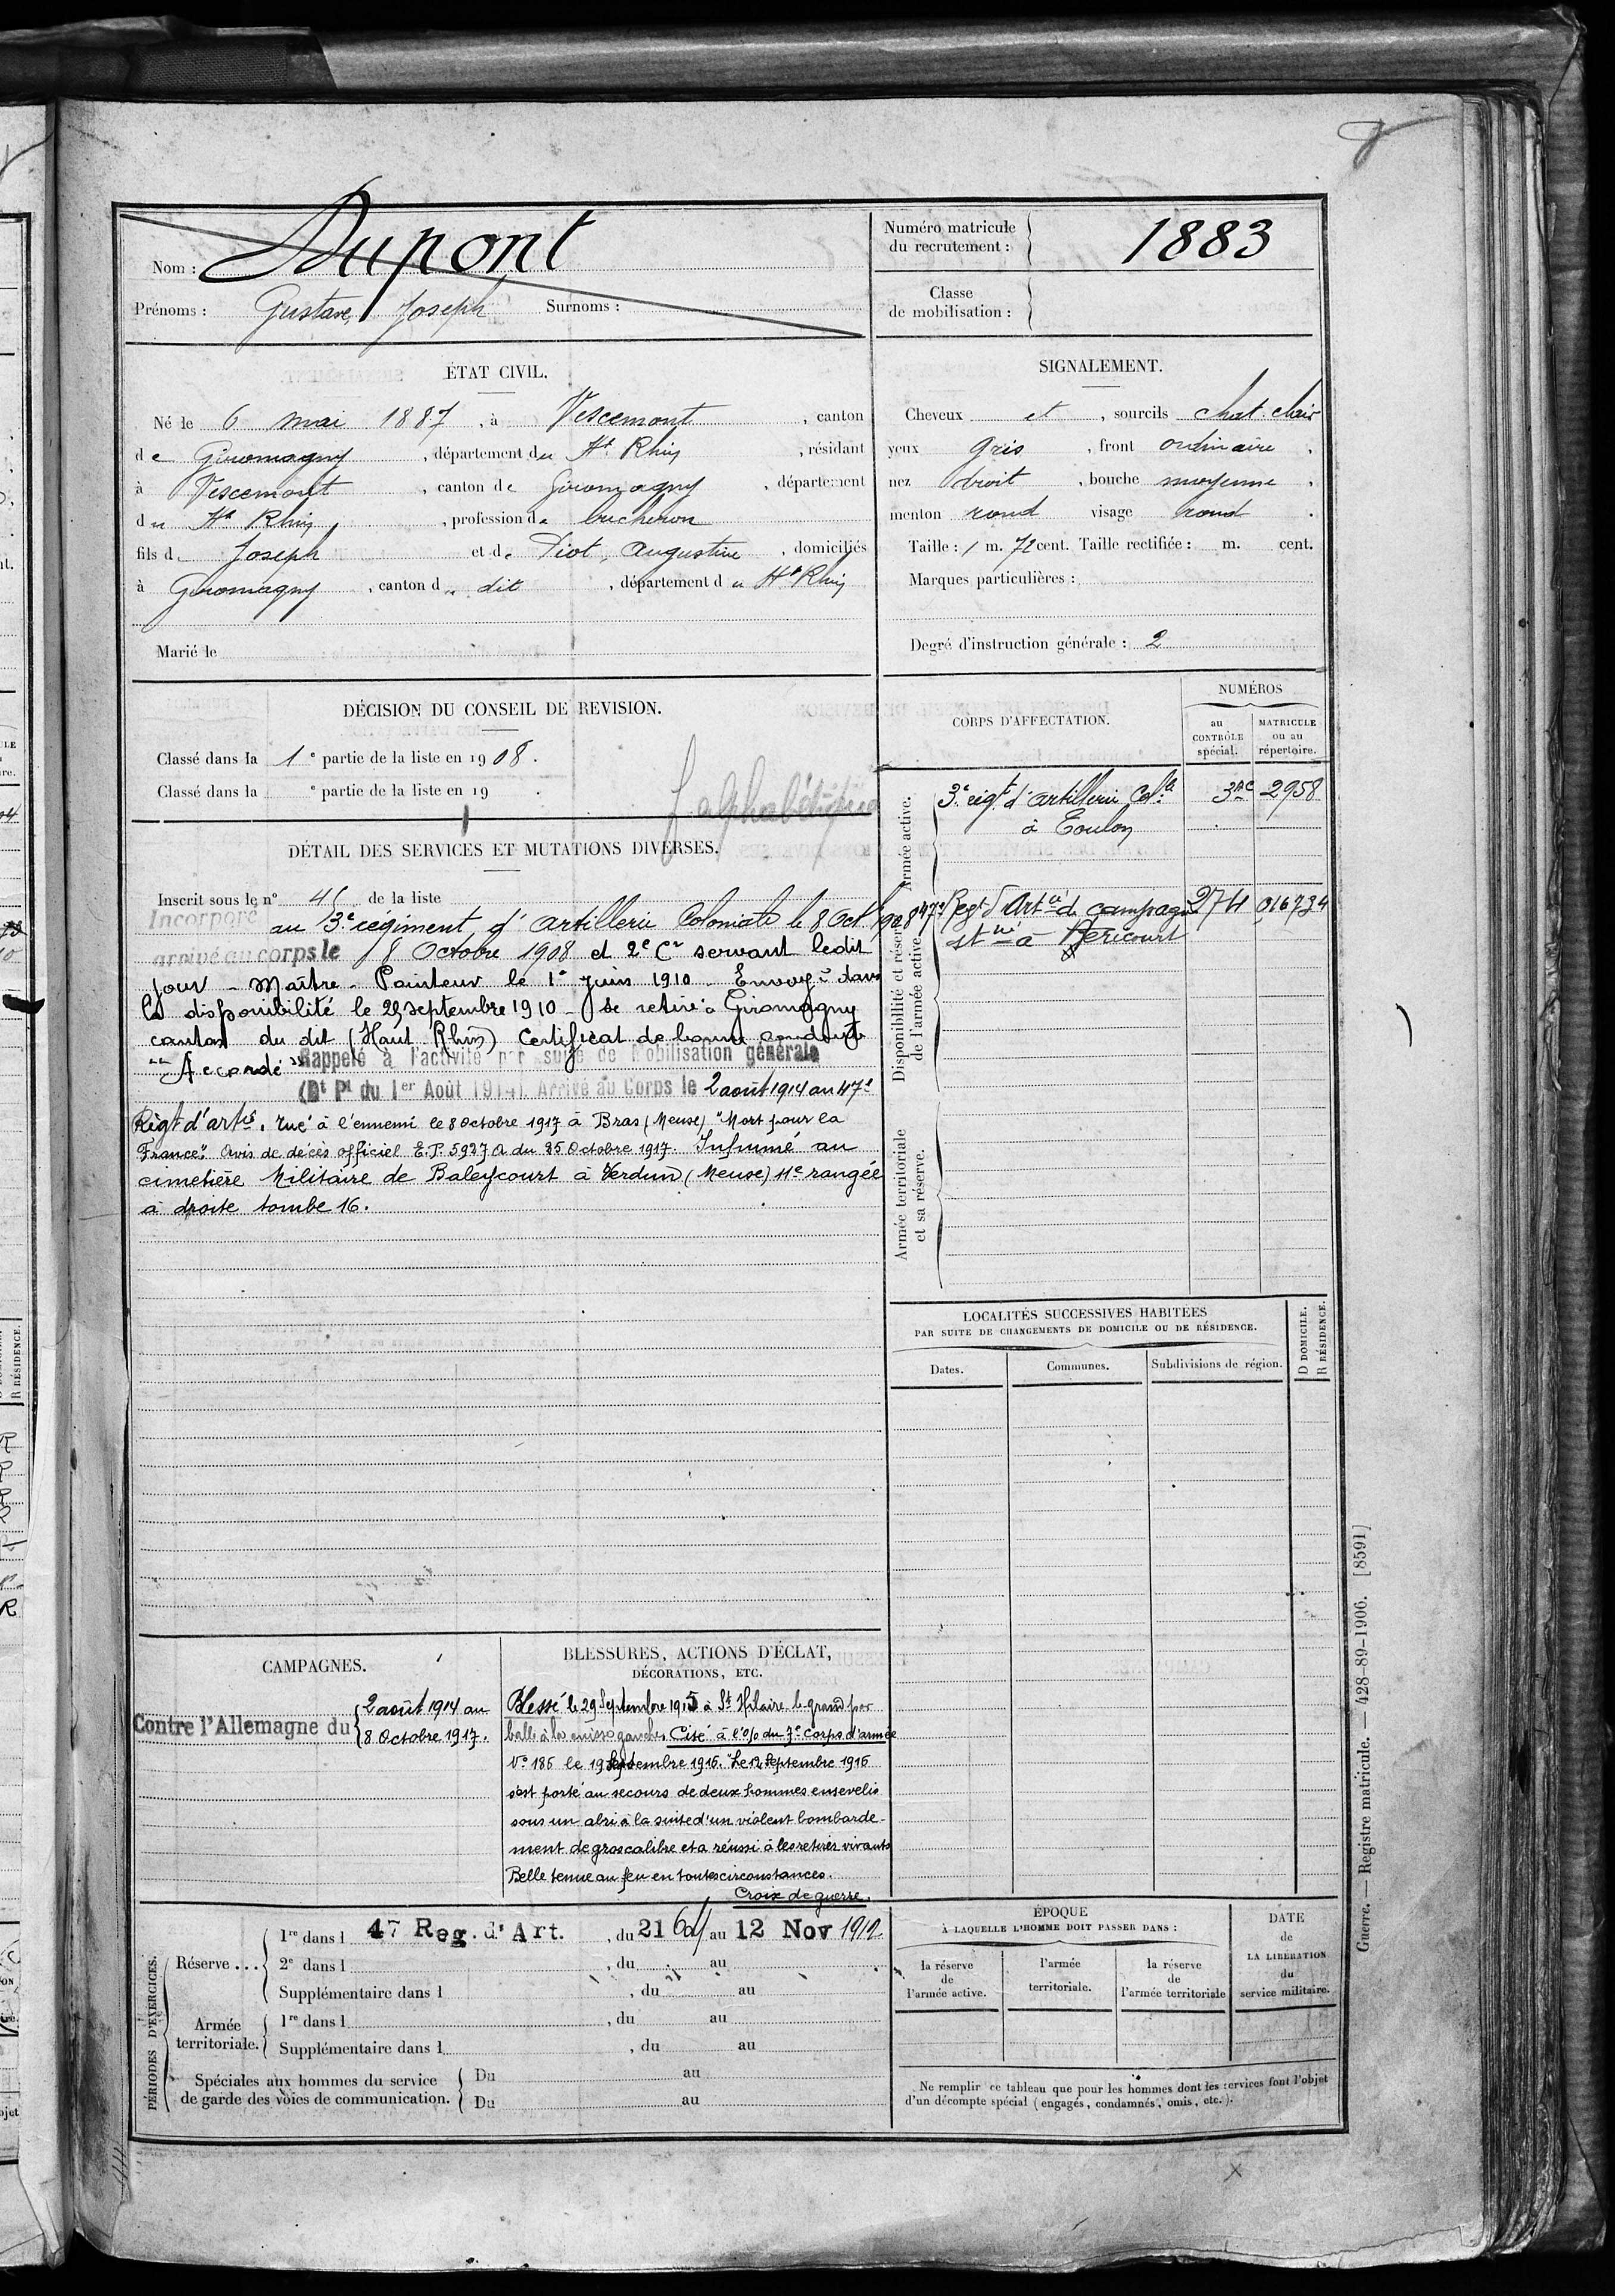 Nom : Dupont
Prénoms : Gustave, Joseph Surnoms :
Numéro matricule
du recrutement : 1883
Classe
de mobilisation :
ÉTAT CIVIL.
Né le 6 mai 1887, à Vescemont, canton
de Giromagny, département du Ht Rhin, résidant
à Vescemont, canton de Giromagny, département
du Ht Rhin, profession de bucheron
fils de Joseph et de Piot, Augustine, domiciliés
à Giromagny, canton du dit, département du Ht Rhin
Marié le
SIGNALEMENT.
Cheveux et, sourcils chat. clair
yeux gris, front ordinaire,
nez droit, bouche moyenne,
menton rond visage rond.
Taille : 1 m. 72 cent. Taille rectifiée : m. cent.
Marques particulières :
Degré d'instruction générale : 2
DÉCISION DU CONSEIL DE REVISION.
Classé dans la 1e partie de la liste en 1908.
Classé dans la e partie de la liste en 19 .
f alphabétique
DÉTAIL DES SERVICES ET MUTATIONS DIVERSES.
Inscrit sous le n° 45 de la liste
Incorporé au 3e régiment d'artillerie Coloniale le 8 Oct. 1908
arrivé au corps le 8 Octobre 1908 et 2e Cr servant ledit
jour - Maître-Pointeur le 1er juin 1910. Envoyé dans
la disponibilité le 25 septembre 1910 - Se retire à Giromagny
canton du dit (Haut Rhin) Certificat de bonne conduite
"Accordé" Rappelé à l'activité par suite de Mobilisation générale
(Dt Pt du 1er Août 1914). Arrivé au Corps le 2 août 1914 au 47e
Régt d'artie. Tué à l'ennemi le 8 Octobre 1917 à Bras (Meuse) "Mort pour la
France". Avis de décès officiel E.P. 5927 A du 25 Octobre 1917. Inhumé au
cimetière Militaire de Baleycourt à Verdun (Meuse) 11e rangée
à droite tombe 16.
CORPS D'AFFECTATION.
NUMÉROS
au
CONTRÔLE
spécial.
MATRICULE
ou au
répertoire.
Armée active.
3e régt d'artillerie Colle 3AC 2958
à Toulon
Disponibilité et réserve
de l'armée active.
47e Regt d'Artie de campagne 274 016734
stné à Héricourt
Armée territoriale
et sa réserve.
LOCALITÉS SUCCESSIVES HABITÉES
PAR SUITE DE CHANGEMENTS DE DOMICILE OU DE RÉSIDENCE.
Dates.
Communes.
Subdivisions de région.
D DOMICILE.
R RÉSIDENCE.
CAMPAGNES.
Contre l'Allemagne du 2 août 1914 au
8 Octobre 1917.
BLESSURES, ACTIONS D'ÉCLAT,
DÉCORATIONS, ETC.
Blessé le 29 Septembre 1915 à St Hilaire le grand par
balle à la cuisse gauche. Cité à l'o/o du 7e Corps d'armée
N° 186 le 19 Septembre 1916. "Le 12 Septembre 1916
s'est porté au secours de deux hommes ensevelis
sous un abri à la suite d'un violent bombarde-
ment de gros calibre et a réussi à les retirer vivants
Belle tenue au feu en toutes circonstances.
Croix de guerre.
PÉRIODES D'EXERCICES.
Réserve ...
1re dans l 47 Reg. d'Art., du 21 Oct au 12 Nov 1912
2e dans l , du au
Supplémentaire dans l , du au
Armée
territoriale.
1re dans l , du au
Supplémentaire dans l , du au
Spéciales aux hommes du service
de garde des voies de communication.
Du au
Du au
ÉPOQUE
À LAQUELLE L'HOMME DOIT PASSER DANS :
la réserve
de
l'armée active.
l'armée
territoriale.
la réserve
de
l'armée territoriale
DATE
de
LA LIBÉRATION
du
service militaire.
Ne remplir ce tableau que pour les hommes dont les services font l'objet
d'un décompte spécial (engagés, condamnés, omis, etc.).
Guerre. — Registre matricule. — 428-89-1906. [8591]